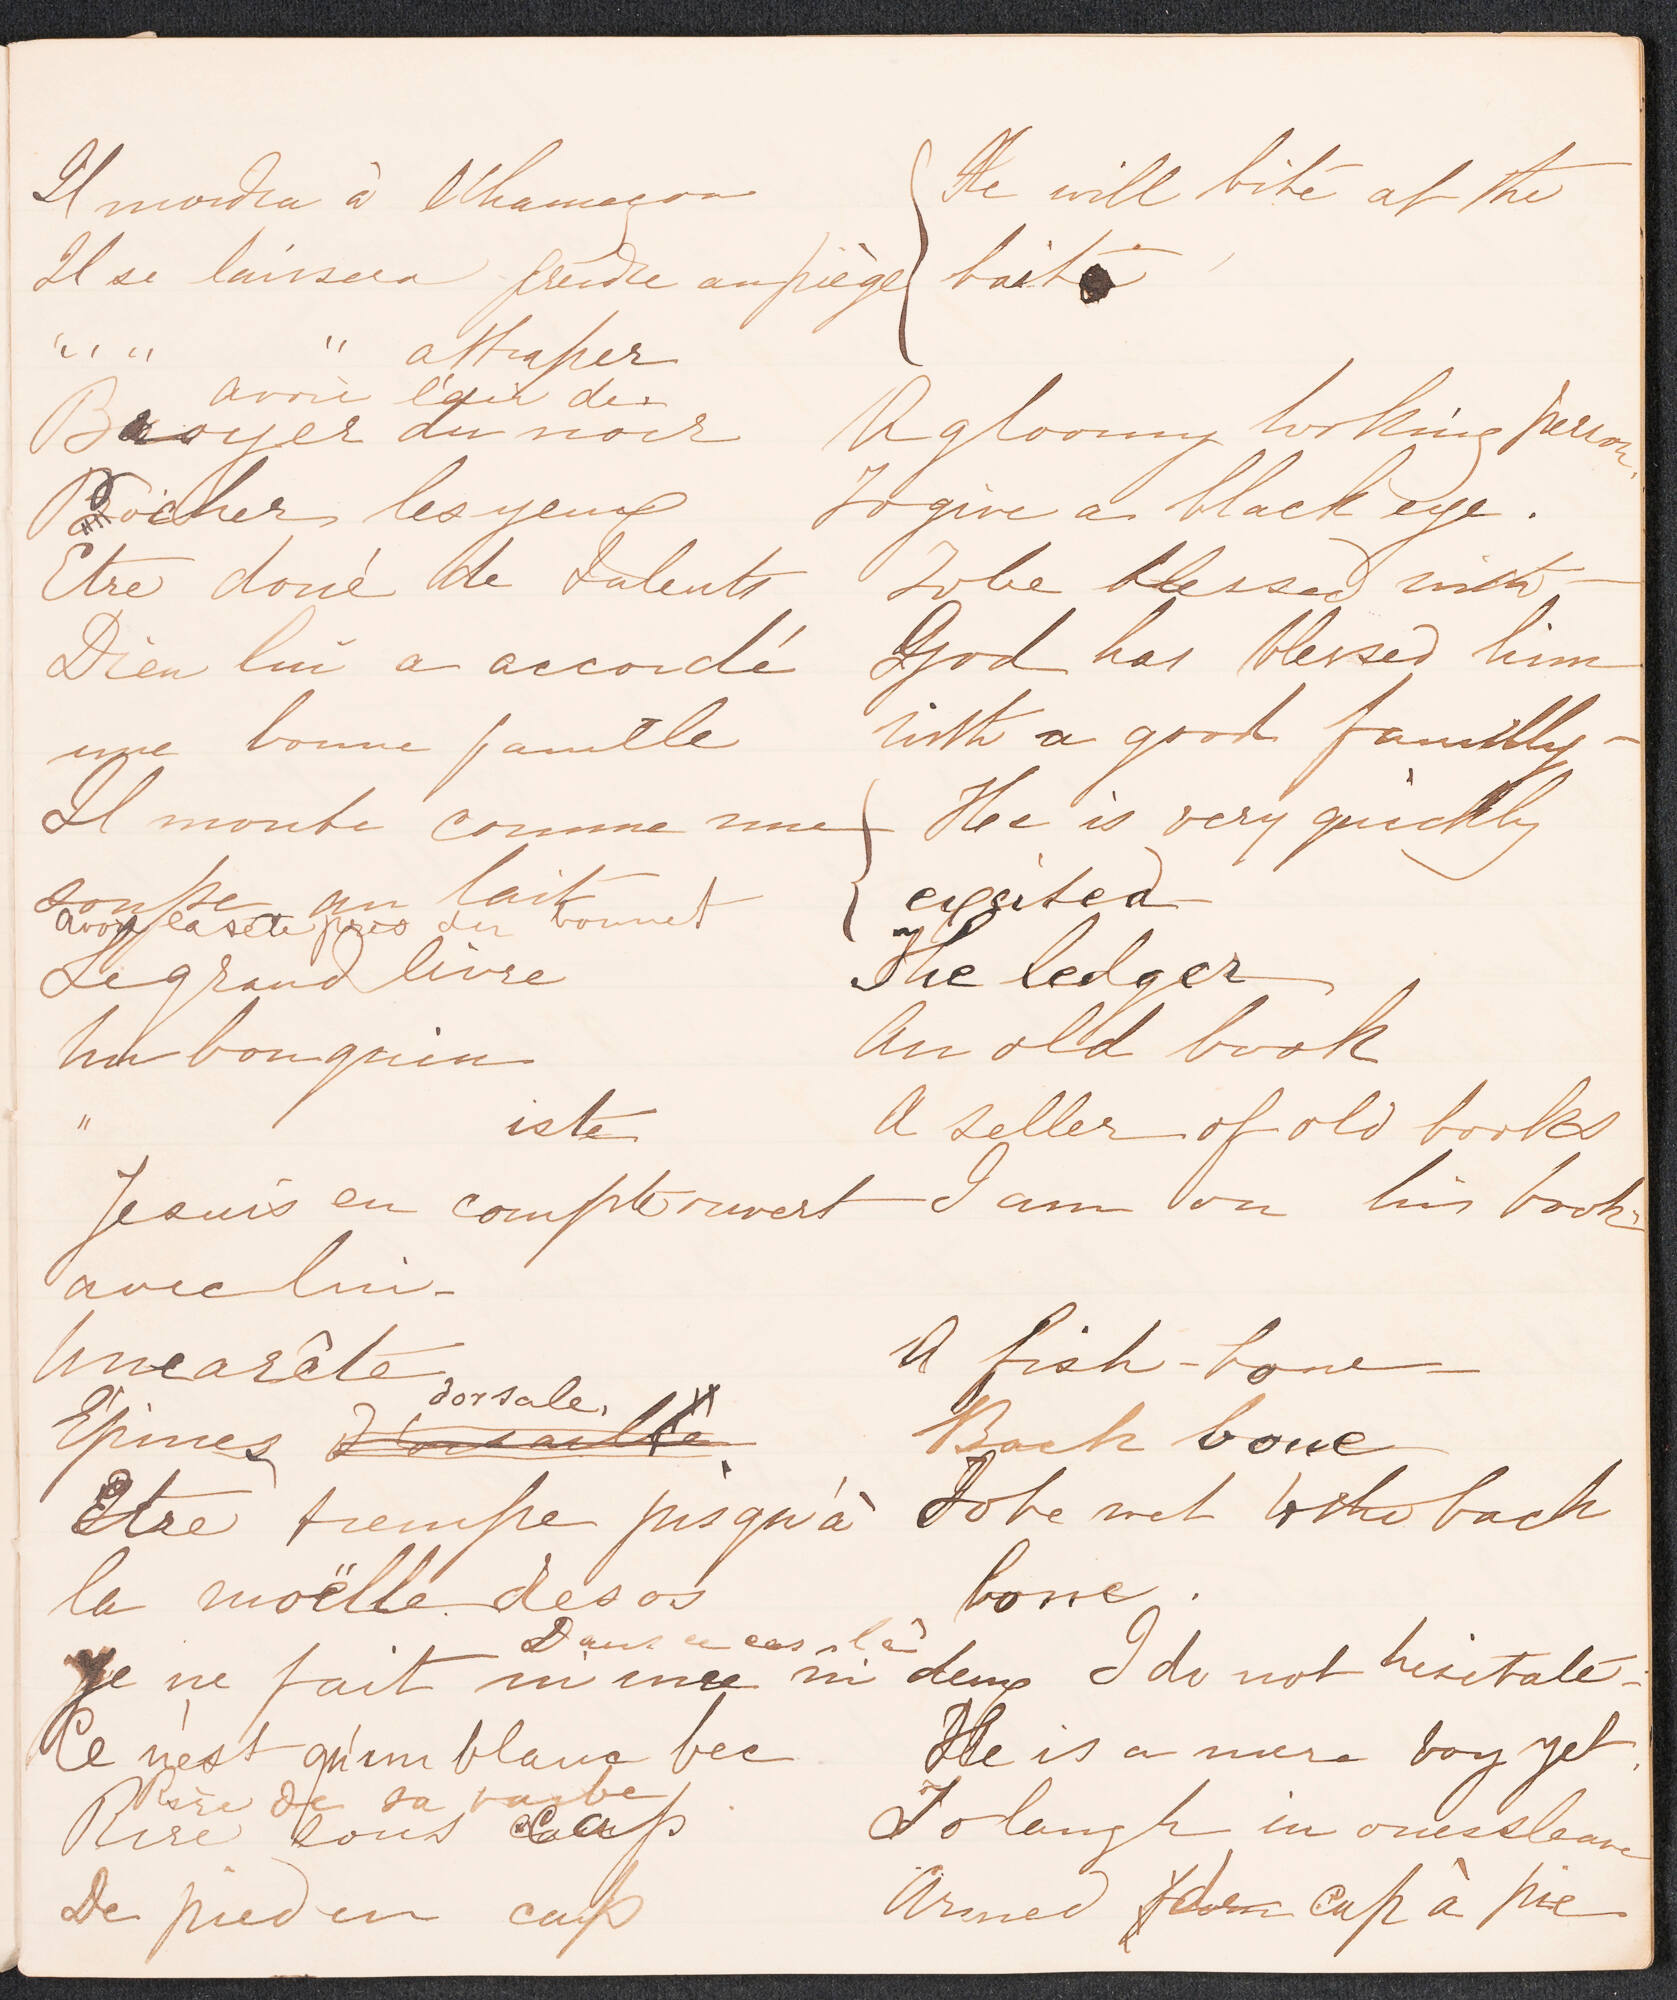 Il mordra à l'hameçon { He will bite at the
Il se laissera prendre au piège { bait
" " " " attraper
avoir l'air de
Broyer du noir A gloomy looking person.
Pocher les yeux To give a black eye.
Etre doué de talents To be blessed with -
Dieu lui a accordé God has blessed him
une bonne famille with a good familly -
Il monte comme une { He is very quickly
soupe au lait { exsited
avoir la tète près du bonnet
Le grand livre The ledger
Un bouquin An old book
" iste A seller of old books
Je suis en compte ouvert I am on his books
avec lui -
Une arête A fish-bone -
dorsale.
Épines Back bone
Etre trempe jusqu'à To be wet to the back
la moëlle des os bone.
Dans ce cas là
Je ne fait ni une ni deux I do not hesitate -
Ce n'est qu'un blanc bec He is a mere boy yet.
Rire de sa barbe
Rire sous cap To laugh in ones sleave
De pied en cap Armed from cap à pie